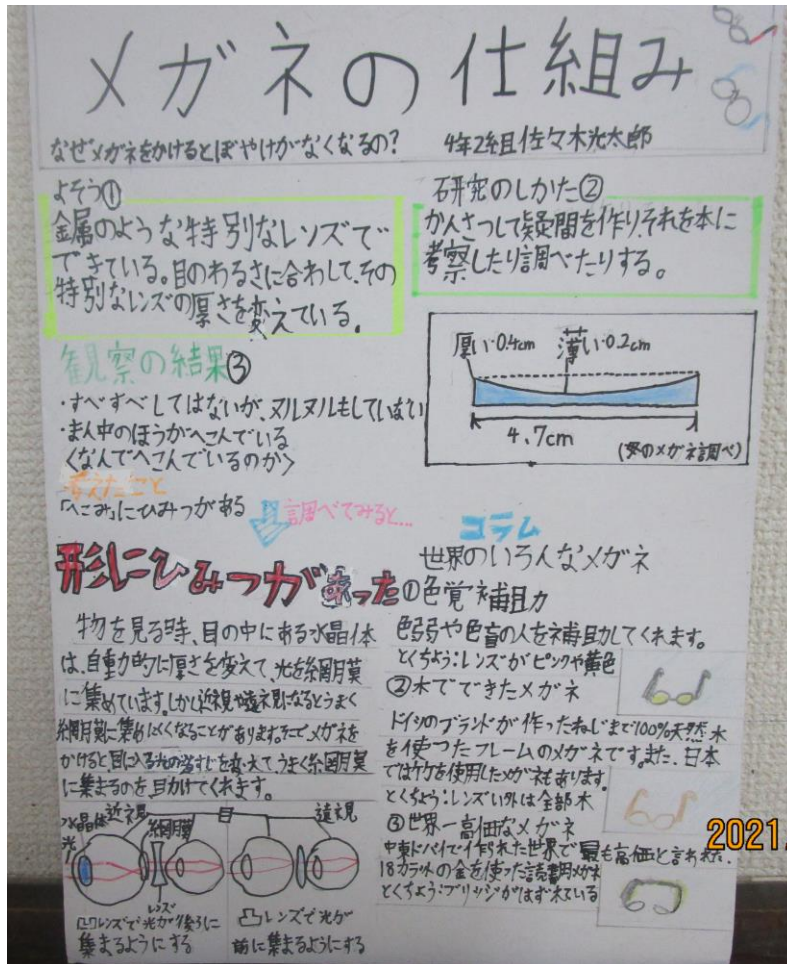 メガネの仕組み
なぜメガネをかけるとぼやけがなくなるの？ 4年2組佐々木光太郎
よそう①
金属のような特別なレンズで
できている。目のわるさに合わして、その
特別なレンズの厚さを変えている。
研究のしかた②
かんさつして疑問を作り、それを本に
考察したり調べたりする。
厚い0.4cm 薄い0.2cm
4.7cm
(父のメガネ調べ)
観察の結果③
・すべすべしてはないが、ヌルヌルもしていない
・まん中のほうがへこんでいる
〈なんでへこんでいるのか〉
考えたこと
「へこみ」にひみつがある
調べてみると…
形にひみつがあった
物を見る時、目の中にある水晶体
は、自動的に厚さを変えて、光を網膜
に集めています。しかし近視や遠視になるとうまく
網膜に集めにくくなることがあります。そこでメガネを
かけると、目に入る光の を変えて、うまく網膜
に集まるのを、助けてくれます。
水晶体 近視 遠視
光 網膜
レンズ
凹レンズで光が後ろに
集まるようにする
凸レンズで光が
前に集まるようにする
コラム
世界のいろんなメガネ
①色覚補助
色弱や色盲の人を補助してくれます。
とくちょう:レンズがピンクや黄色
②木でできたメガネ
ドイツのブランドが作ったねじまで100%天然木
を使ったフレームのメガネです。また、日本
では竹を使用したメガネもあります。
とくちょう:レンズい外は全部木
③世界一高価なメガネ
中東ドバイで作られた世界で最も高価と言われた、
18カラットの金を使った読書用メガネ
とくちょう:ブリッジがはずれている
2021.